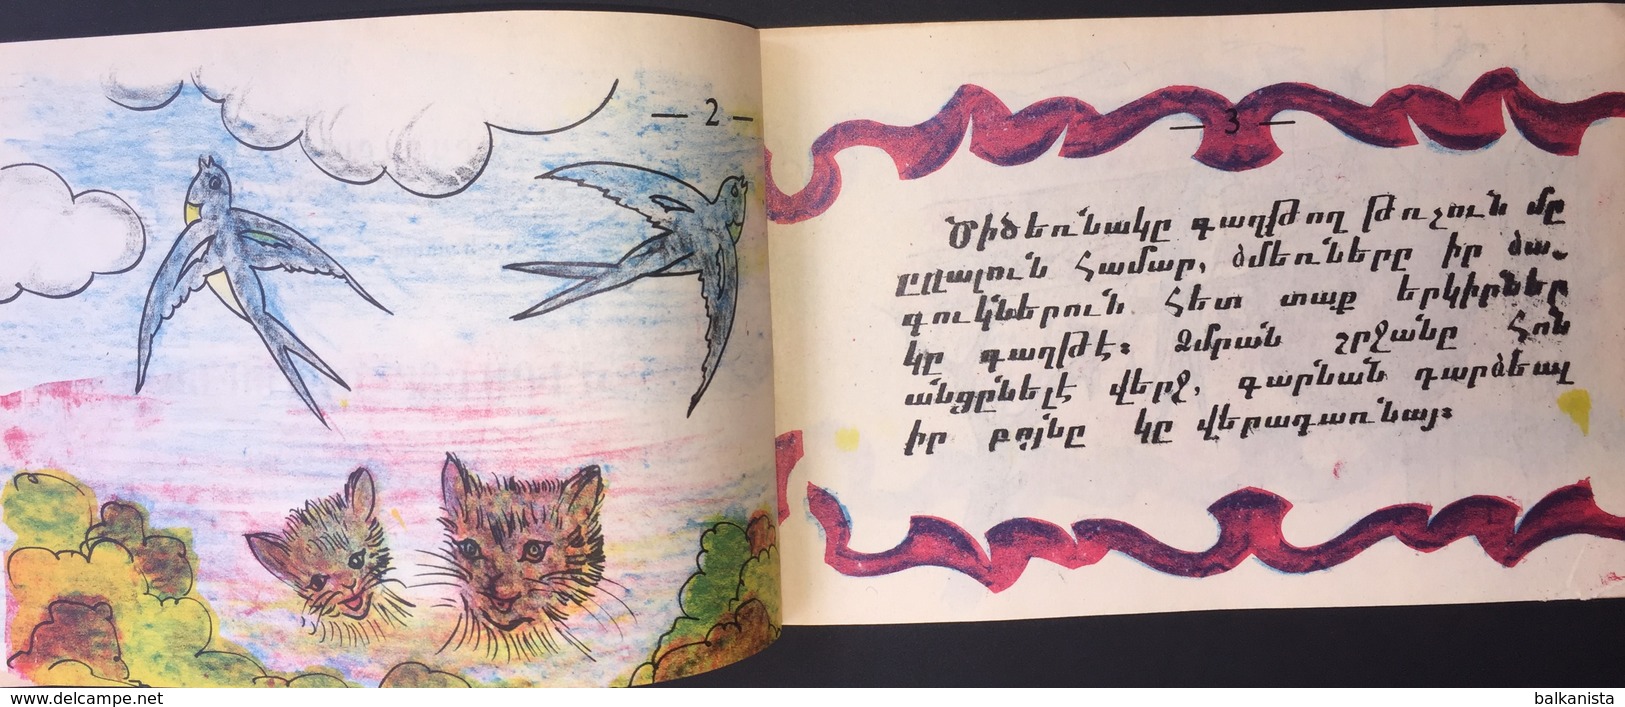 — 2 —
— 3 —
Ծիծեռնակը գաղթող թռչուն մը
ըլլալուն համար, ձմեռները իր ձա-
գուկներուն հետ տաք երկիրներ
կը գաղթէ։ Ձմրան շրջանը հոն
անցընելէ վերջ, գարնան դարձեալ
իր բոյնը կը վերադառնայ։
www.delcampe.net
balkanista